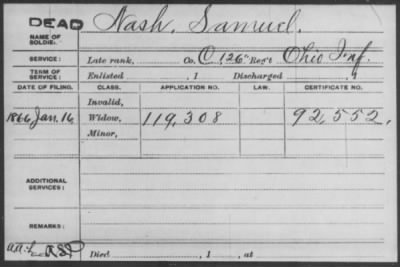 DEAD
Nash, Samuel.
NAME OF SOLDIER:
SERVICE: Late rank, Co. C 126" Reg't Ohio Inf.
TERM OF SERVICE: Enlisted , 1 Discharged , 1
DATE OF FILING. CLASS. APPLICATION NO. LAW. CERTIFICATE NO.
Invalid,
1866 Jan. 16 Widow, 119,308 92,552.
Minor,
ADDITIONAL SERVICES:
REMARKS:
Died , 1 , at